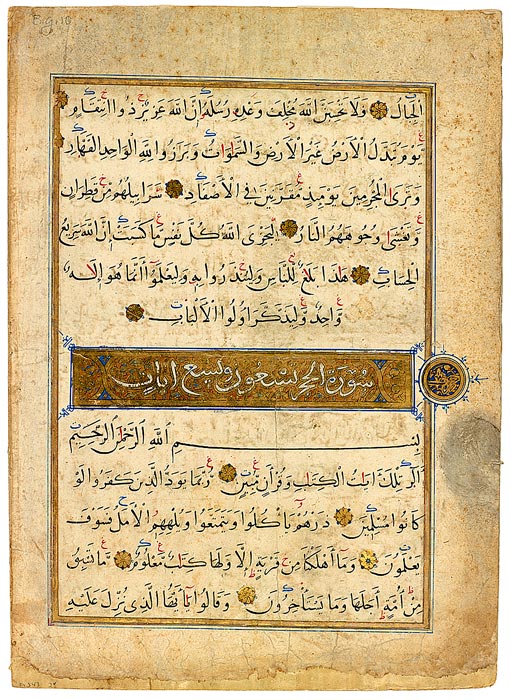 الجبال فلا تحسبن الله مخلف وعده رسله إن الله عزيز ذو انتقام
يوم تبدل الأرض غير الأرض والسموات وبرزوا لله الواحد القهار
وترى المجرمين يومئذ مقرنين في الأصفاد سرابيلهم من قطران
وتغشى وجوههم النار ليجزي الله كل نفس ما كسبت إن الله سريع
الحساب هذا بلغ للناس ولينذروا به وليعلموا أنما هو إله
واحد وليذكر أولوا الألباب
سورة الحجر تسعون وتسع آيات
بسم الله الرحمن الرحيم
الر تلك آيات الكتاب وقرآن مبين ربما يود الذين كفروا لو
كانوا مسلمين ذرهم يأكلوا ويتمتعوا ويلههم الأمل فسوف
يعلمون وما أهلكنا من قرية إلا ولها كتاب معلوم ما تسبق
من أمة أجلها وما يستأخرون وقالوا يا أيها الذي نزل عليه